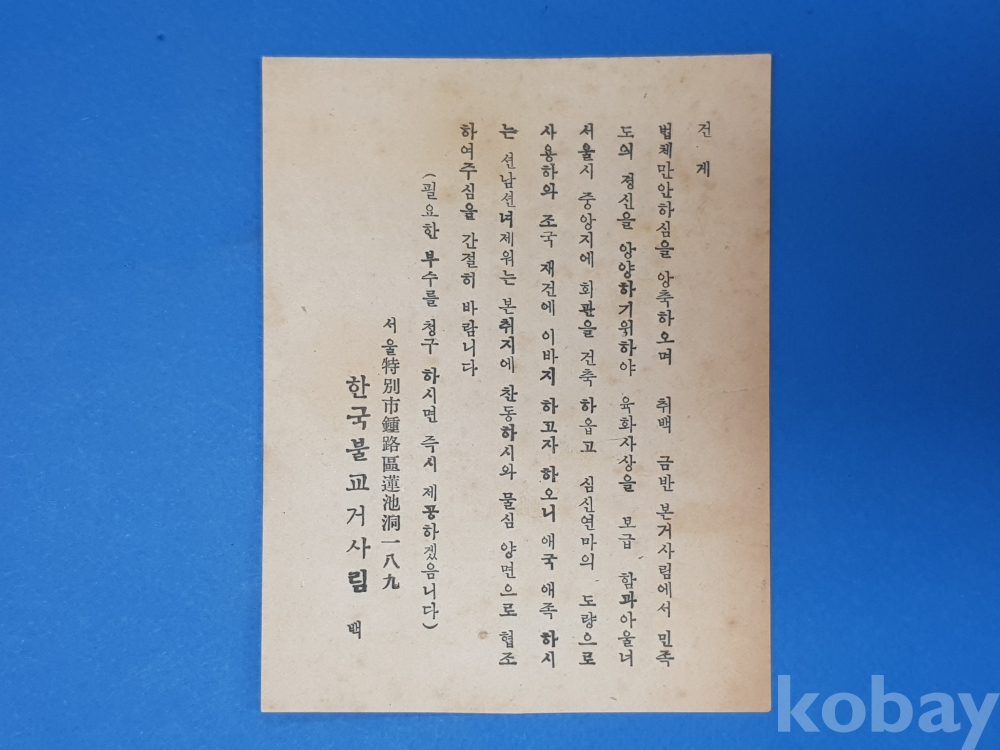 건 게
법체만안하심을 앙축하오며 취백 금반 본거사림에서 민족
도의 정신을 앙양하기위하야 육화사상을 보급 함과아울너
서울시 중앙지에 회관을 건축 하옵고 심신연마의 도량으로
사용하와 조국 재건에 이바지 하고자 하오니 애국 애족 하시
는 선남선녀제위는 본취지에 찬동하시와 물심 양면으로 협조
하여주심을 간절히 바람니다
(필요한 부수를 청구 하시면 즉시 제공하겠음니다)
서울特別市鍾路區蓮池洞一八九
한국불교거사림 백
kobay